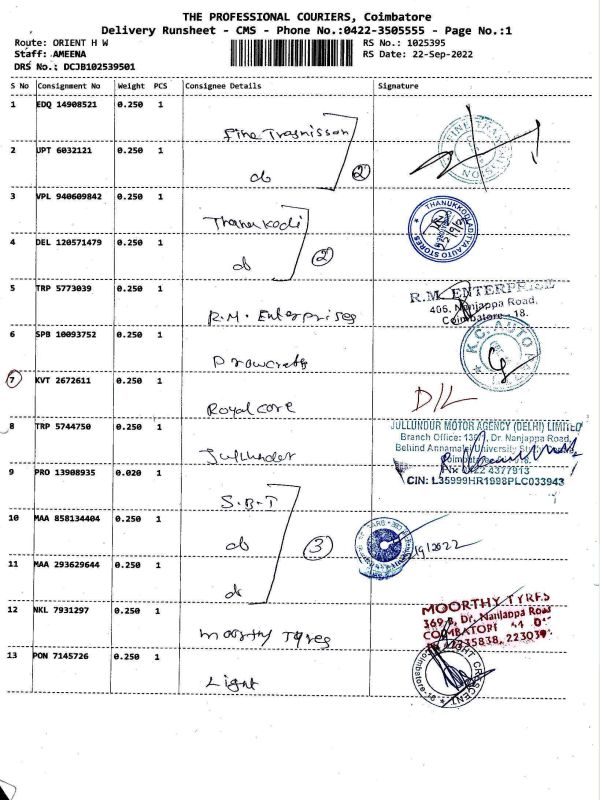 THE PROFESSIONAL COURIERS, Coimbatore
Delivery Runsheet - CMS - Phone No.:0422-3505555 - Page No.:1
Route: ORIENT H W
RS No.: 1025395
Staff: AMEENA
RS Date: 22-Sep-2022
DRS No.: DCJB102539501
S No Consignment No Weight PCS Consignee Details Signature
1 EDQ 14908521 0.250 1 Fine Trasnisson
2 UPT 6032121 0.250 1 do 2
3 VPL 940609842 0.250 1 Thanukodi
4 DEL 120571479 0.250 1 do 2
5 TRP 5773039 0.250 1 R.M. Enterprises
R.M. ENTERPRISE
406, Nanjappa Road,
Coimbatore - 18.
6 SPB 10093752 0.250 1
K.C. AUTO
7 KVT 2672611 0.250 1 Royal core D/L
8 TRP 5744750 0.250 1 Jullunder
JULLUNDUR MOTOR AGENCY (DELHI) LIMITED
Branch Office: Dr. Nanjappa Road,
Behind Annamalai University
0422 4377913
CIN: L35999HR1998PLC033943
9 PRO 13908935 0.020 1 S.B.T
10 MAA 858134404 0.250 1 do 3
11 MAA 293629644 0.250 1 do
12 NKL 7931297 0.250 1 Moorthy Tyres
MOORTHY TYRES
369 B, Dr. Nanjappa Road
COIMBATORE
13 PON 7145726 0.250 1 Light